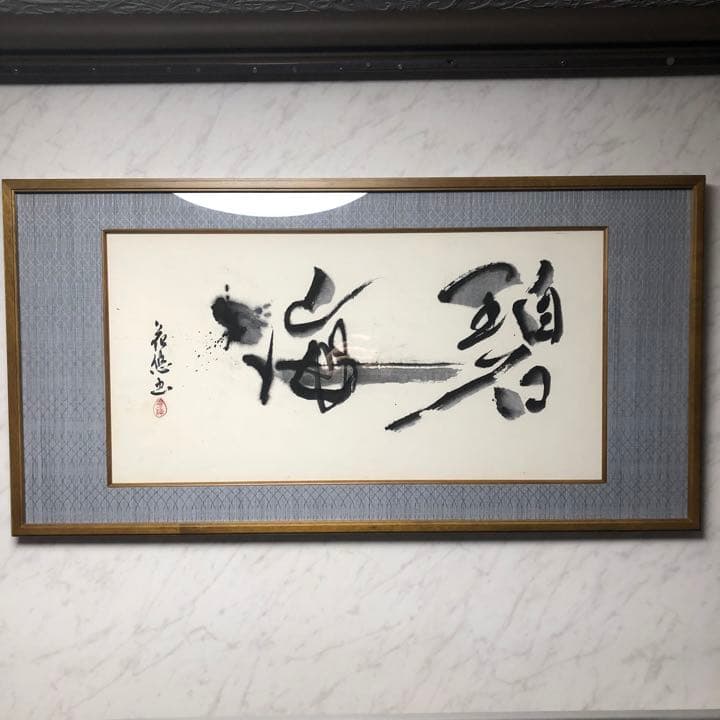 碧海
花悠書